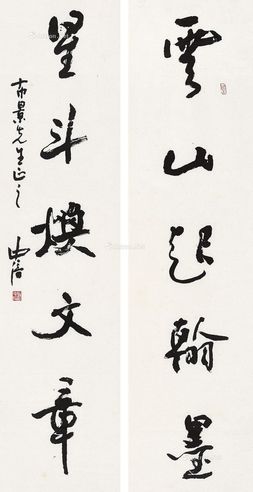 雲山起翰墨
星斗撰文章
布景先生正之